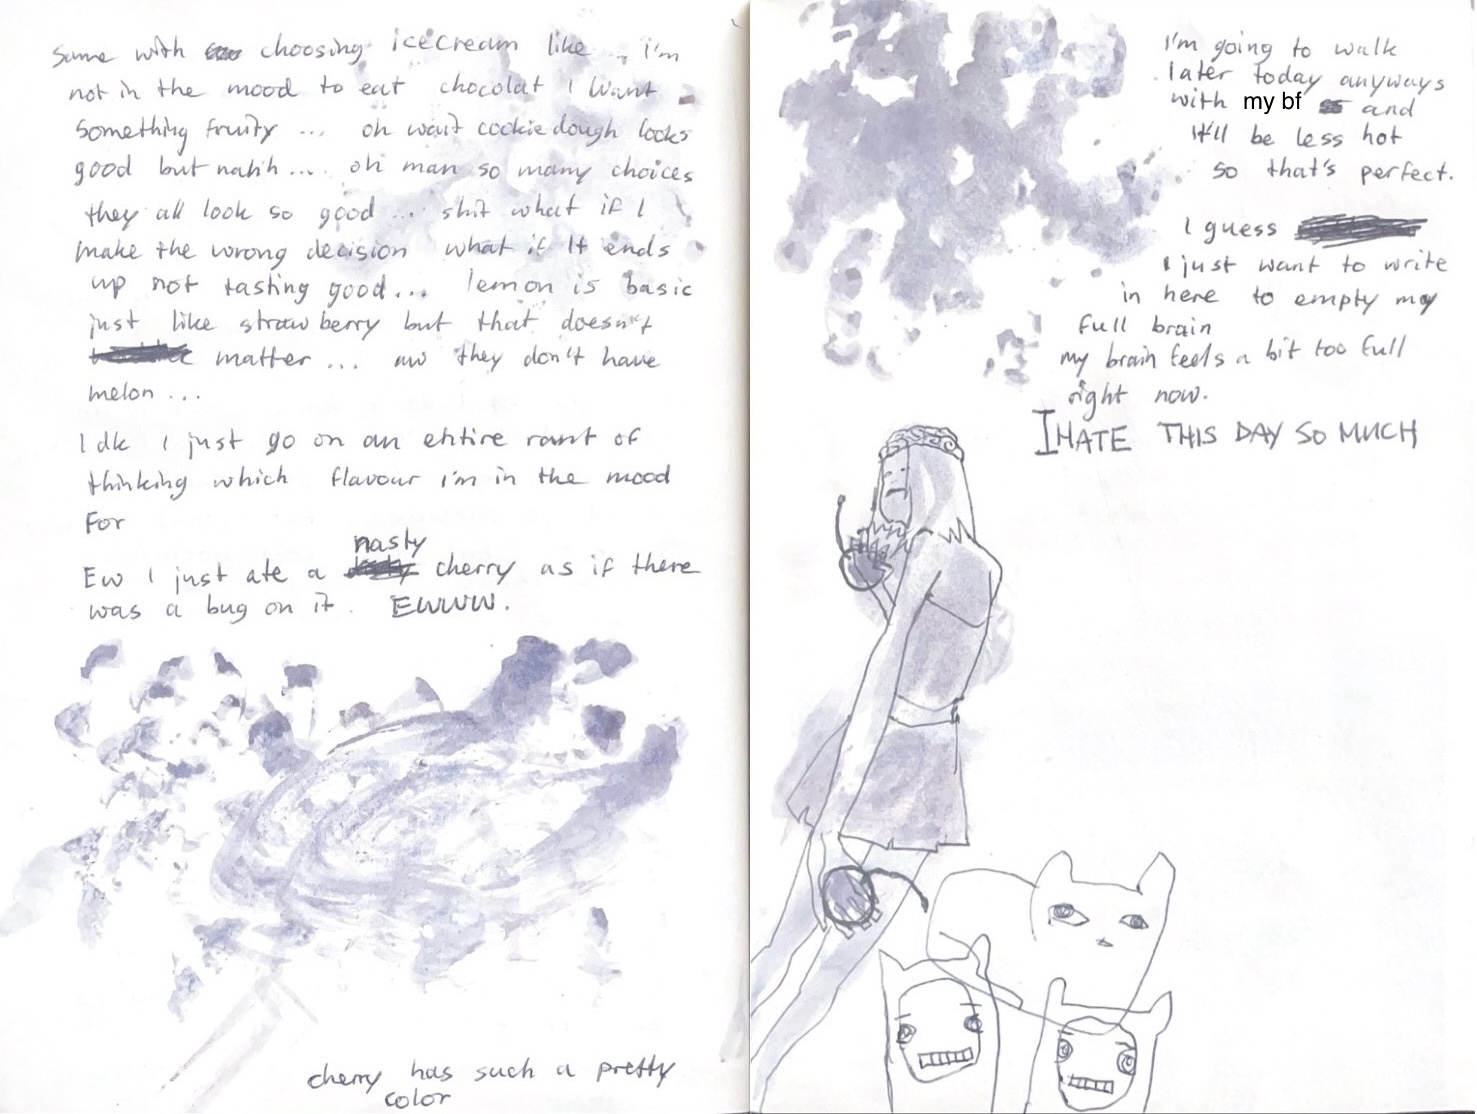 Same with choosing icecream like .. i'm
not in the mood to eat chocolat I want
something fruity ... oh wait cookie dough looks
good but nahh .... oh man so many choices
they all look so good .... shit what if I
make the wrong decision what if it ends
up not tasting good... lemon is basic
just like strawberry but that doesn't
matter ... aw they don't have
melon ...
I dk I just go on an entire rant of
thinking which flavour i'm in the mood
for
Ew I just ate a nasty cherry as if there
was a bug on it. EWWW.
cherry has such a pretty
color
I'm going to walk
later today anyways
with my bf and
it'll be less hot
so that's perfect.
I guess
I just want to write
in here to empty my
full brain
my brain feels a bit too full
right now.
I HATE THIS DAY SO MUCH